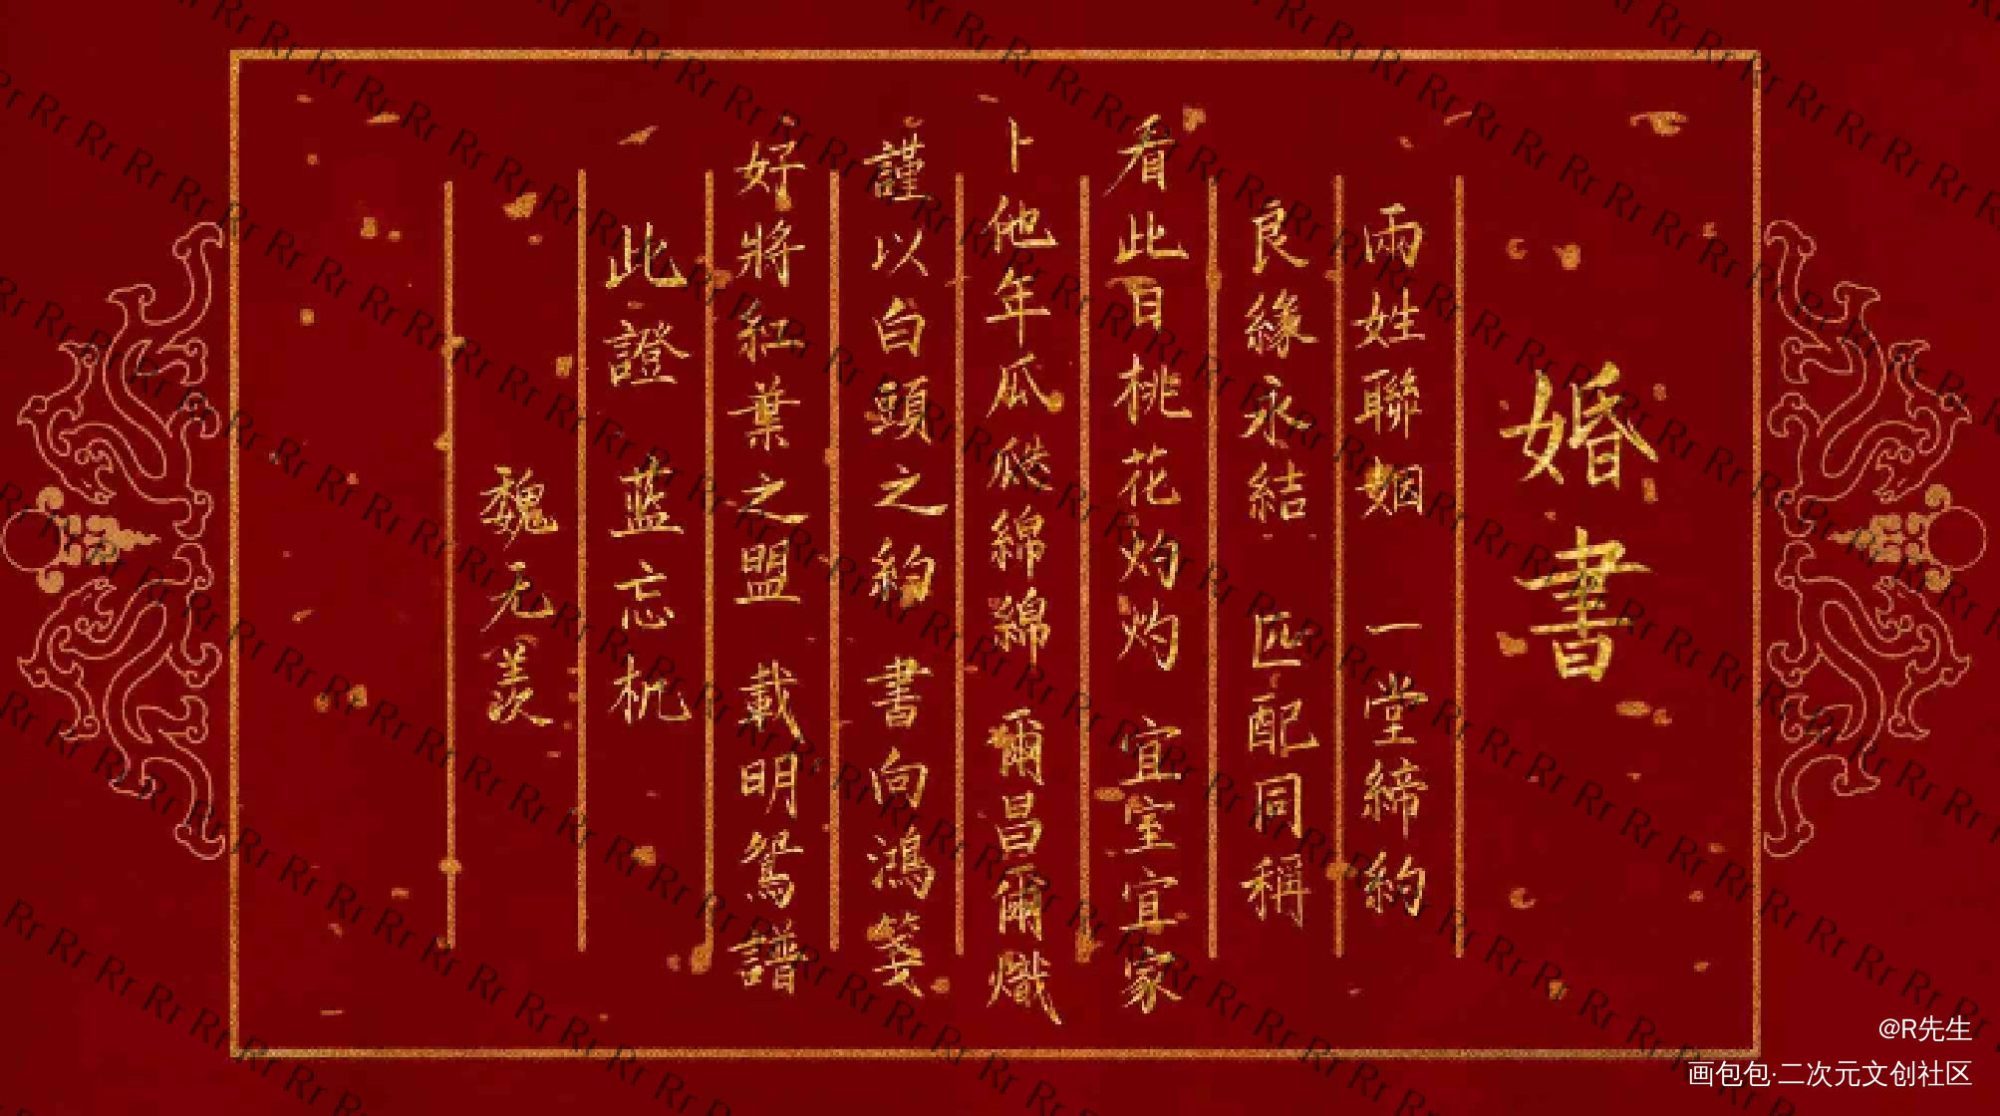 婚書
兩姓聯姻 一堂締約
良緣永結 匹配同稱
看此日桃花灼灼 宜室宜家
卜他年瓜瓞綿綿 爾昌爾熾
謹以白頭之約 書向鴻箋
好將紅葉之盟 載明鴛譜
此證 蓝忘机
魏无羡
@R先生
画包包·二次元文创社区
Rr Rr Rr Rr Rr Rr Rr Rr